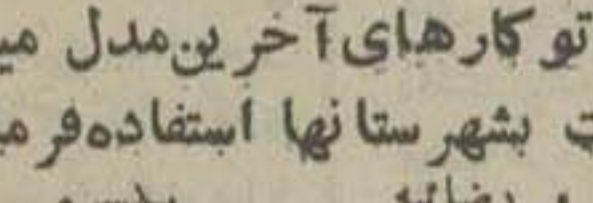 تو کارهای آخرین مدل می
ت بشهرستانها استفاده فرم
رضائیه